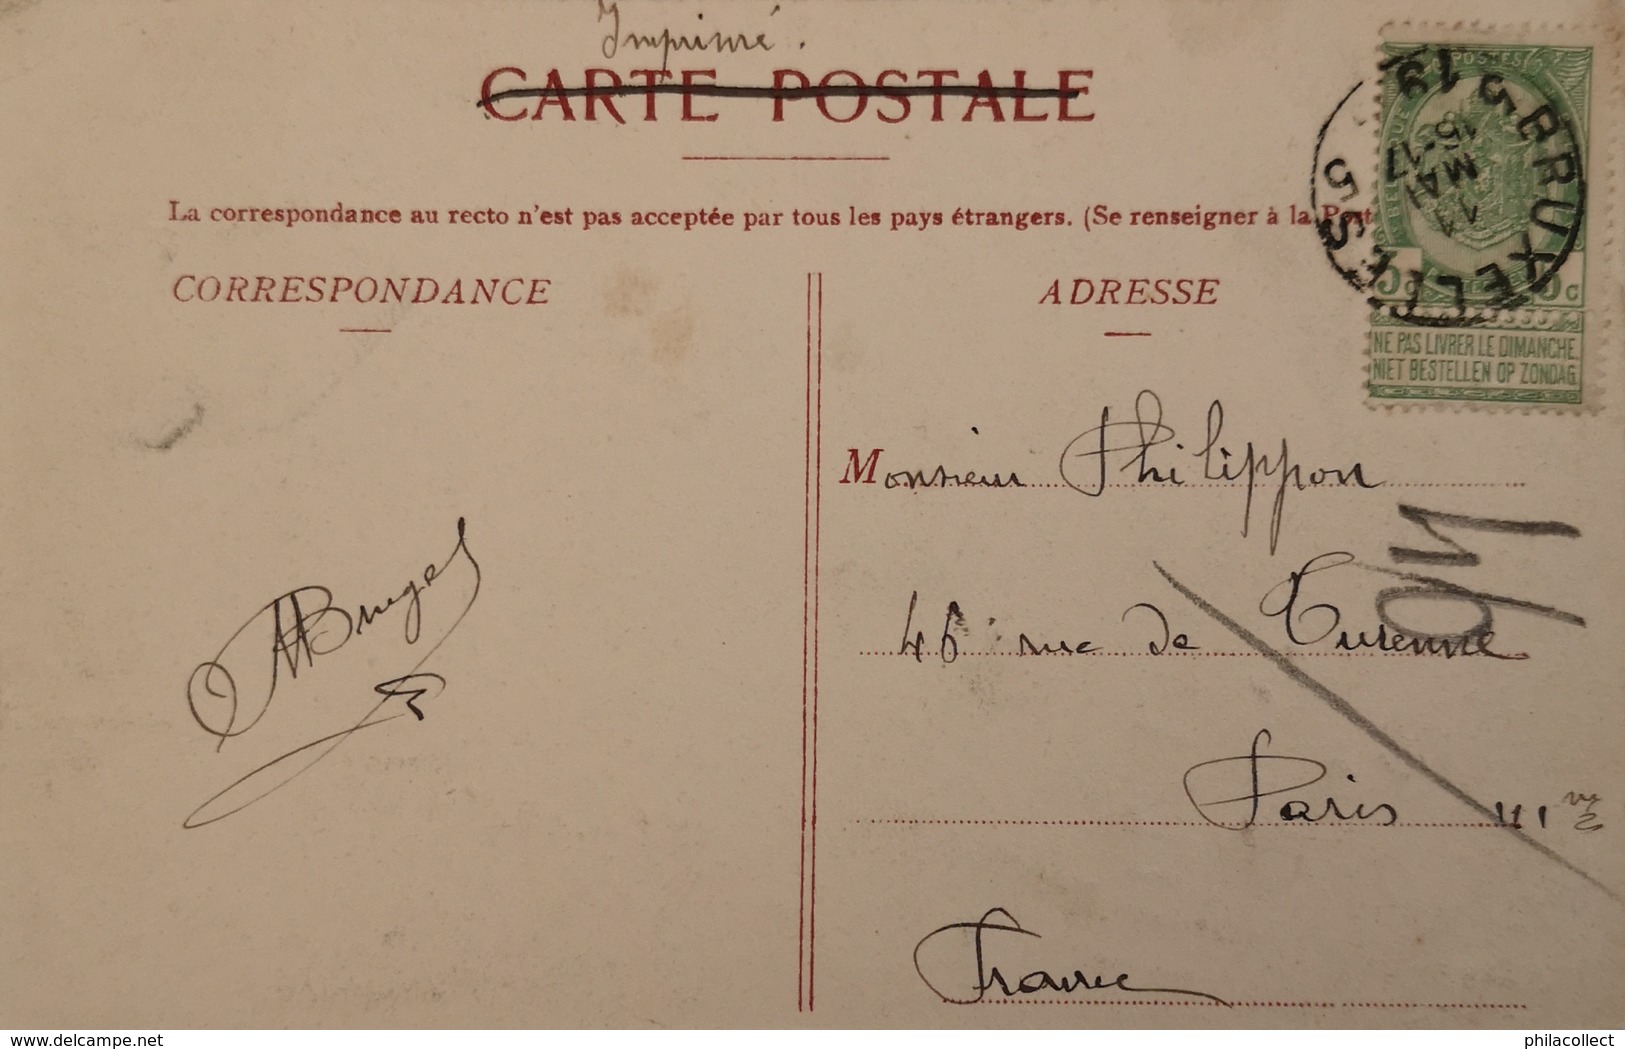 Imprimé.
CARTE POSTALE
La correspondance au recto n'est pas acceptée par tous les pays étrangers. (Se renseigner à la Post
CORRESPONDANCE
ADRESSE
BRUXELLES 5
15-17
MAI
POSTES
5c
NE PAS LIVRER LE DIMANCHE.
NIET BESTELLEN OP ZONDAG.
Monsieur Philippon
46 rue de Turenne
Paris III me
France
Bruges
delcampe.net
philacollect